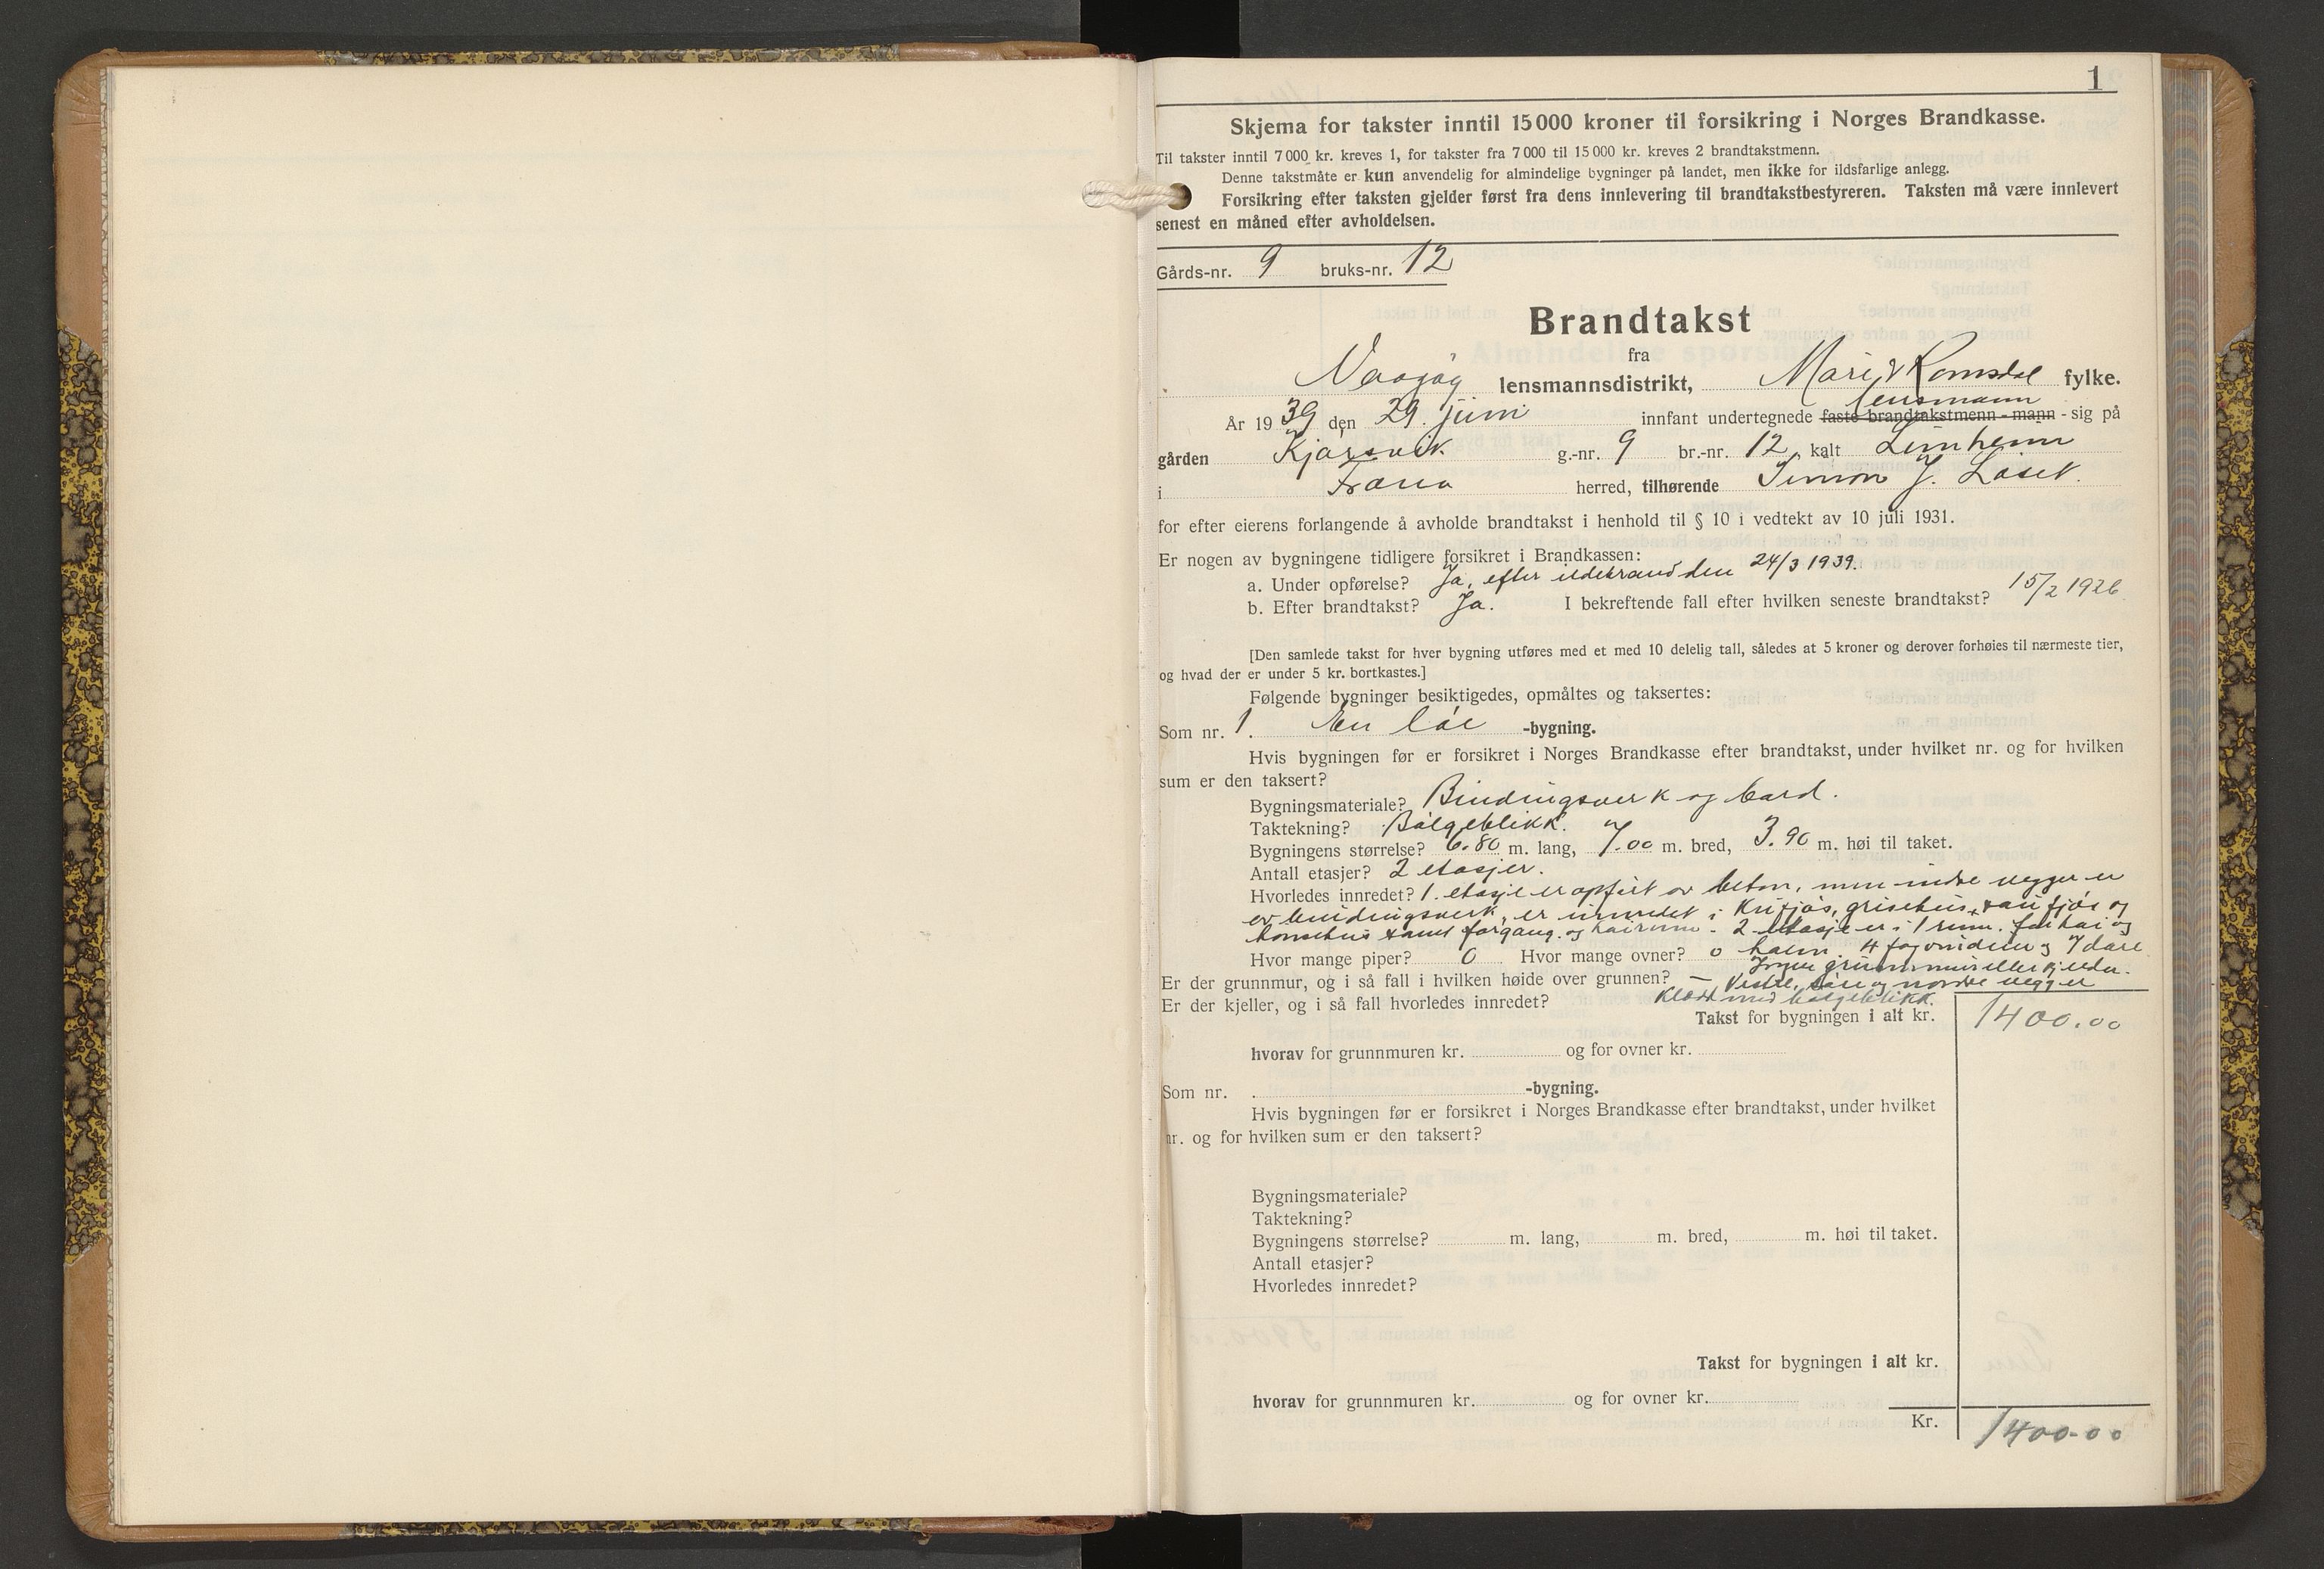 1
Skjema for takster inntil 15 000 kroner til forsikring i Norges Brandkasse.
Til takster inntil 7 000 kr. kreves 1, for takster fra 7 000 til 15 000 kr. kreves 2 brandtakstmenn.
Denne takstmåte er kun anvendelig for almindelige bygninger på landet, men ikke for ildsfarlige anlegg.
Forsikring efter taksten gjelder først fra dens innlevering til brandtakstbestyreren. Taksten må være innlevert
senest en måned efter avholdelsen.
Gårds-nr. 9 bruks-nr. 12
Brandtakst
fra
lensmannsdistrikt, Møre & Romsdal fylke.
lensmann
År 1939 den 29. juni innfant undertegnede faste brandtakstmenn - mann - sig på
gården Kjørsvik g.-nr. 9 br.-nr. 12 kalt Limheim
i Fræna herred, tilhørende Simon J. Løset.
for efter eierens forlangende å avholde brandtakst i henhold til § 10 i vedtekt av 10 juli 1931.
Er nogen av bygningene tidligere forsikret i Brandkassen:
a. Under opførelse? Ja, efter ildebrand den 24/3 1939.
b. Efter brandtakst? Ja. I bekreftende fall efter hvilken seneste brandtakst? 15/2 1926
[Den samlede takst for hver bygning utføres med et med 10 delelig tall, således at 5 kroner og derover forhøies til nærmeste tier,
og hvad der er under 5 kr. bortkastes.]
Følgende bygninger besiktigedes, opmåltes og taksertes:
Som nr. 1. En løe -bygning.
Hvis bygningen før er forsikret i Norges Brandkasse efter brandtakst, under hvilket nr. og for hvilken
sum er den taksert?
Bygningsmateriale? Bindingsverk og bord.
Taktekning? Bølgeblikk.
Bygningens størrelse? 6.80 m. lang, 7.00 m. bred, 3.90 m. høi til taket.
Antall etasjer? 2 etasjer.
Hvorledes innredet? 1. etasje er opført av beton, men indre vegger er
av bindingsverk, er innredet i kufjøs, grisehus, saufjøs og
hønsehus samt forgang og høirum. 2 etasje er i 1 rum for høi og
Hvor mange piper? 0 Hvor mange ovner? 0 halm. 4 fagvinduer og 7 døre
Er der grunnmur, og i så fall i hvilken høide over grunnen? — Ingen grunnmur eller kjelder.
Er der kjeller, og i så fall hvorledes innredet? — Vestre, søre og nordre vegg er
klædt med bølgeblikk.
Takst for bygningen i alt kr. 1400.00
hvorav for grunnmuren kr. og for ovner kr.
Som nr. . -bygning.
Hvis bygningen før er forsikret i Norges Brandkasse efter brandtakst, under hvilket
nr. og for hvilken sum er den taksert?
Bygningsmateriale?
Taktekning?
Bygningens størrelse? m. lang, m. bred, m. høi til taket.
Antall etasjer?
Hvorledes innredet?
Takst for bygningen i alt kr.
hvorav for grunnmuren kr. og for ovner kr.
Kr. 1400.00